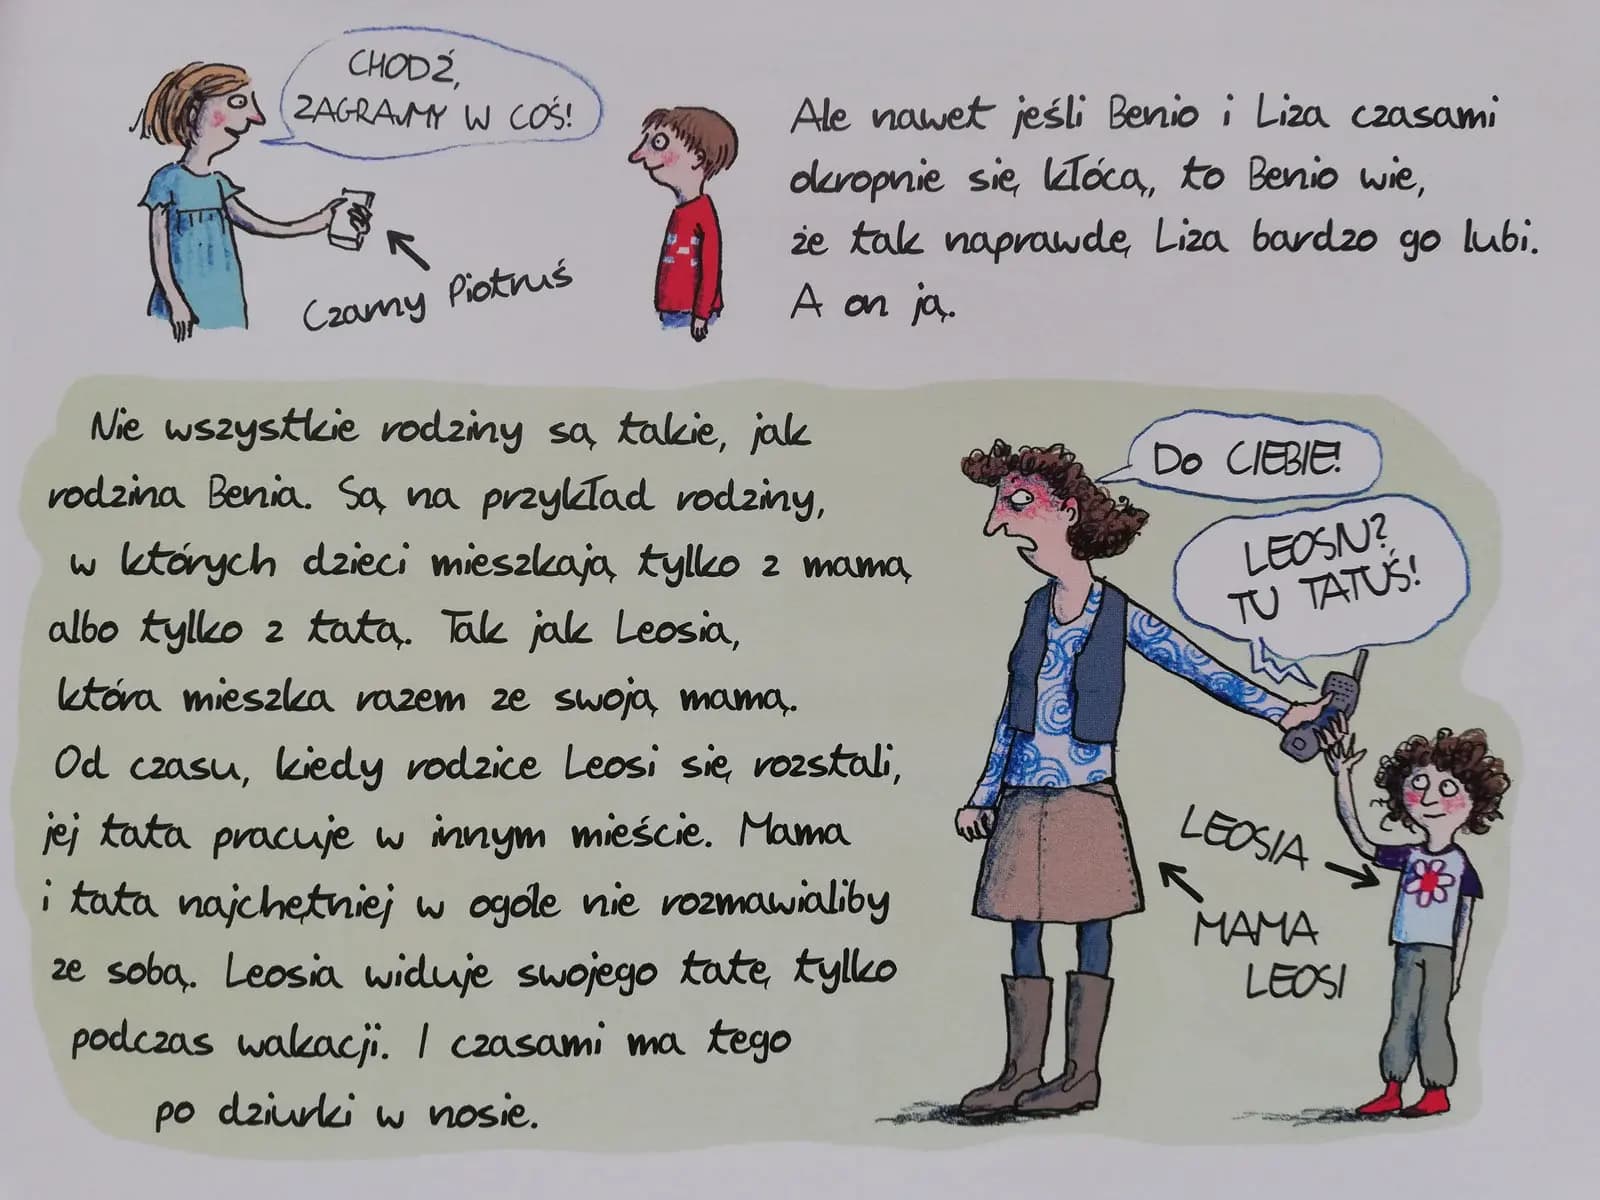 CHODŹ,
ZAGRAJMY W COŚ!
Czarny Piotruś
Ale nawet jeśli Benio i Liza czasami
okropnie się kłócą, to Benio wie,
że tak naprawdę Liza bardzo go lubi.
A on ją.
Nie wszystkie rodziny są takie, jak
rodzina Benia. Są na przykład rodziny,
w których dzieci mieszkają tylko z mamą
albo tylko z tatą. Tak jak Leosia,
która mieszka razem ze swoją mamą.
Od czasu, kiedy rodzice Leosi się rozstali,
jej tata pracuje w innym mieście. Mama
i tata najchętniej w ogóle nie rozmawialiby
ze sobą. Leosia widuje swojego tatę tylko
podczas wakacji. I czasami ma tego
po dziurki w nosie.
Do CIEBIE!
LEOSIU?
TU TATUŚ!
LEOSIA
MAMA
LEOSI